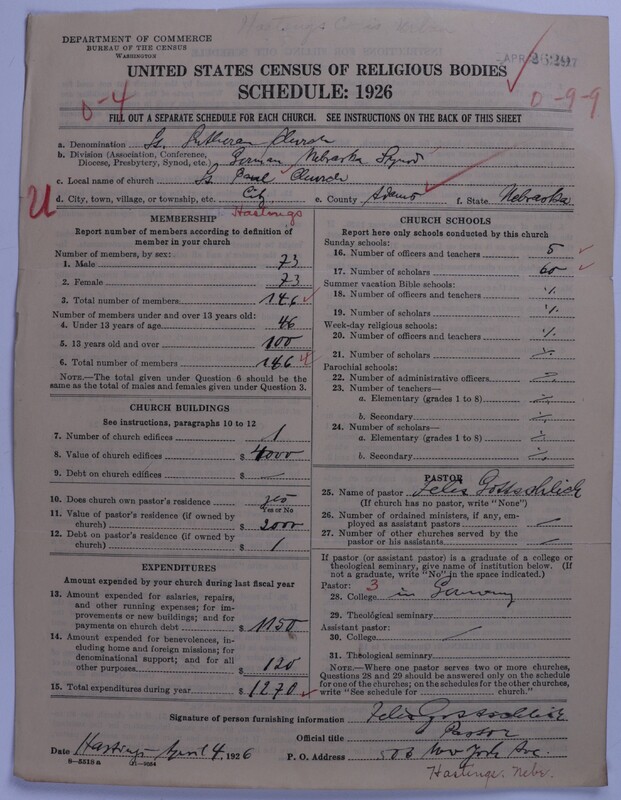 DEPARTMENT OF COMMERCE
BUREAU OF THE CENSUS
WASHINGTON
APR
UNITED STATES CENSUS OF RELIGIOUS BODIES
SCHEDULE: 1926
0-4
0-9-9
FILL OUT A SEPARATE SCHEDULE FOR EACH CHURCH. SEE INSTRUCTIONS ON THE BACK OF THIS SHEET
a. Denomination Lutheran Church
b. Division (Association, Conference, Diocese, Presbytery, Synod, etc.) German Nebraska Synod
c. Local name of church St Paul Church
U
d. City, town, village, or township, etc. City e. County Adams f. State Nebraska
Hastings
MEMBERSHIP
Report number of members according to definition of
member in your church
Number of members, by sex:
1. Male 73
2. Female 73
3. Total number of members 146
Number of members under and over 13 years old:
4. Under 13 years of age 46
5. 13 years old and over 100
6. Total number of members 146
NOTE.—The total given under Question 6 should be the
same as the total of males and females given under Question 3.
CHURCH BUILDINGS
See instructions, paragraphs 10 to 12
7. Number of church edifices 1
8. Value of church edifices $ 4000
9. Debt on church edifices $ —
10. Does church own pastor's residence yes
Yes or No
11. Value of pastor's residence (if owned by
church) $ 2000
12. Debt on pastor's residence (if owned by
church) $
EXPENDITURES
Amount expended by your church during last fiscal year
13. Amount expended for salaries, repairs,
and other running expenses; for im-
provements or new buildings; and for
payments on church debt $ 1150
14. Amount expended for benevolences, in-
cluding home and foreign missions; for
denominational support; and for all
other purposes $ 120
15. Total expenditures during year $ 1270
CHURCH SCHOOLS
Report here only schools conducted by this church
Sunday schools:
16. Number of officers and teachers 5
17. Number of scholars 60
Summer vacation Bible schools:
18. Number of officers and teachers
19. Number of scholars
Week-day religious schools:
20. Number of officers and teachers
21. Number of scholars
Parochial schools:
22. Number of administrative officers
23. Number of teachers—
a. Elementary (grades 1 to 8)
b. Secondary
24. Number of scholars—
a. Elementary (grades 1 to 8)
b. Secondary
PASTOR
25. Name of pastor Felix Gottschlich
(If church has no pastor, write "None")
26. Number of ordained ministers, if any, em-
ployed as assistant pastors —
27. Number of other churches served by the
pastor or his assistants —
If pastor (or assistant pastor) is a graduate of a college or
theological seminary, give name of institution below. (If
not a graduate, write "No" in the space indicated.)
Pastor: 3
28. College in Germany
29. Theological seminary
Assistant pastor:
30. College —
31. Theological seminary
NOTE.—Where one pastor serves two or more churches,
Questions 28 and 29 should be answered only on the schedule
for one of the churches; on the schedules for the other churches,
write "See schedule for church."
Signature of person furnishing information Felix Gottschlich
Official title Pastor
Date Hastings April 4, 1926 P. O. Address 503 New York Ave.
8—5518a
Hastings, Nebr.